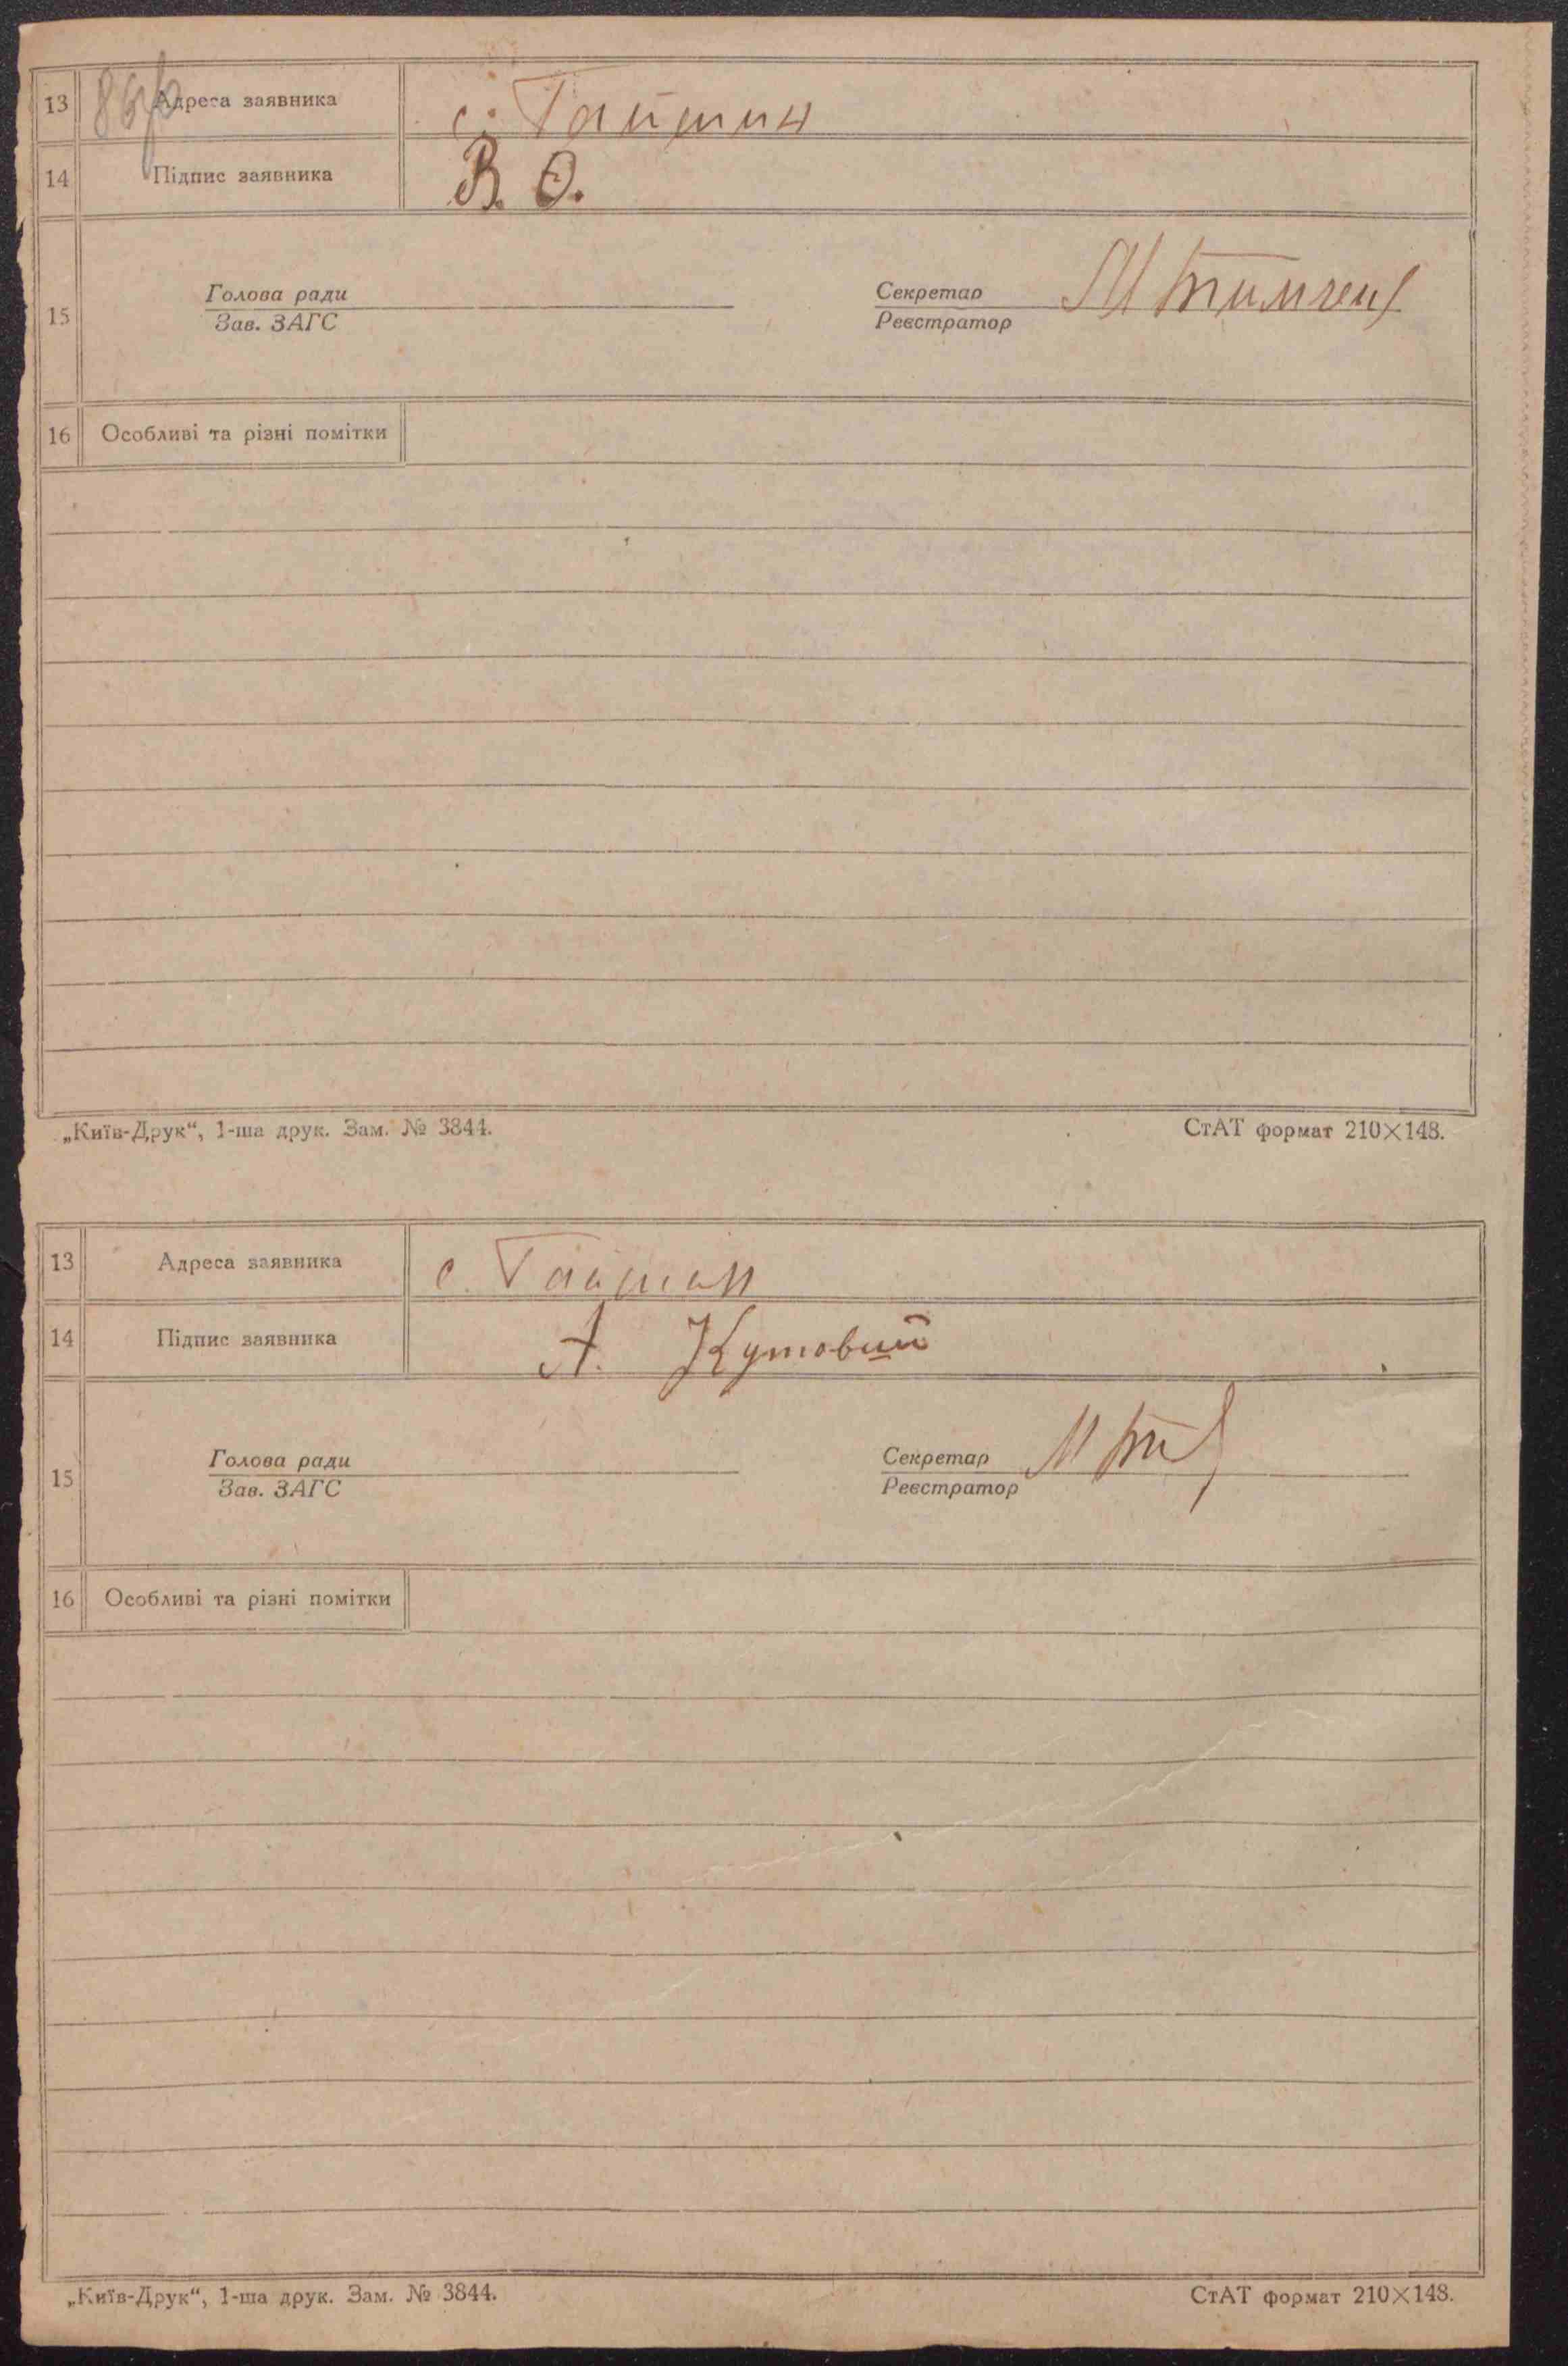 13 Адреса заявника с. Гайшин
14 Підпис заявника В. О.
15 Голова ради Секретар
Зав. ЗАГС Реєстратор
16 Особливі та різні помітки
„Київ-Друк“, 1-ша друк. Зам. № 3844. СтАТ формат 210×148.
13 Адреса заявника с. Гайшин
14 Підпис заявника А. Кутовий
15 Голова ради Секретар
Зав. ЗАГС Реєстратор
16 Особливі та різні помітки
„Київ-Друк“, 1-ша друк. Зам. № 3844. СтАТ формат 210×148.